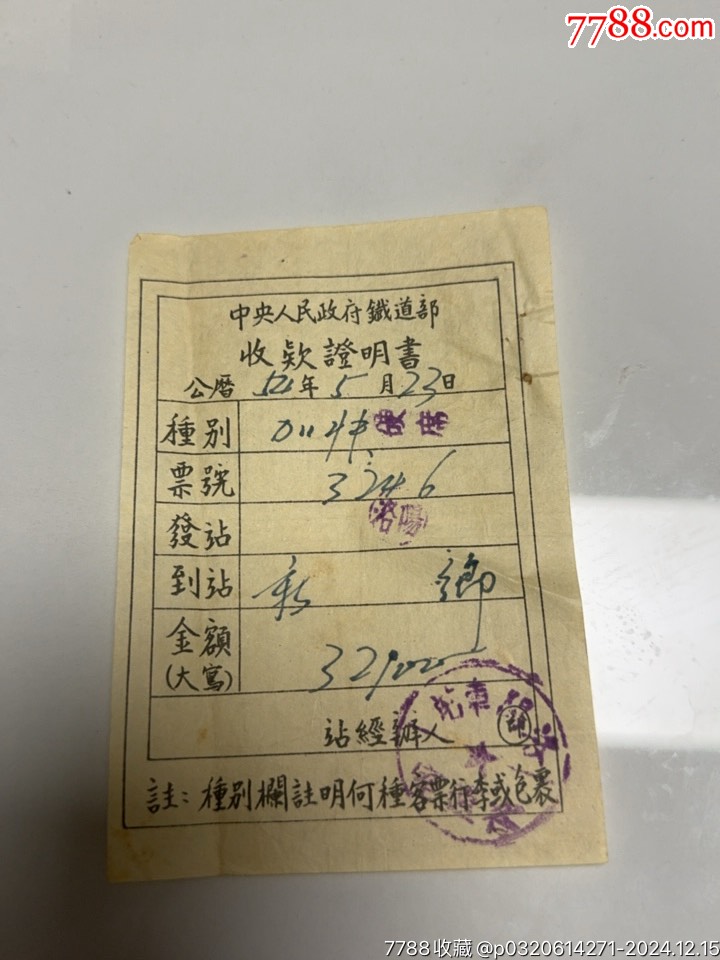 7788.com
中央人民政府鐵道部
收欵證明書
公曆 54 年 5 月 23 日
種别 加快 硬席
票號 3246
發站 洛陽
到站 新鄉
金額 32900
(大寫)
站經辦人
註：種别欄註明何種客票行李或包裹
7788收藏 @p0320614271-2024.12.15